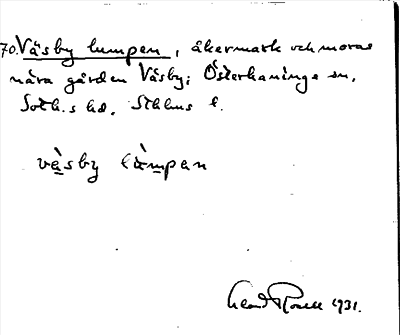 70. Väsby lumpen, åkermark och moras
nära gården Väsby; Österhaninge sn,
Soth.s hd. Sthlms l.
vä̀sby lùmpen
1931.